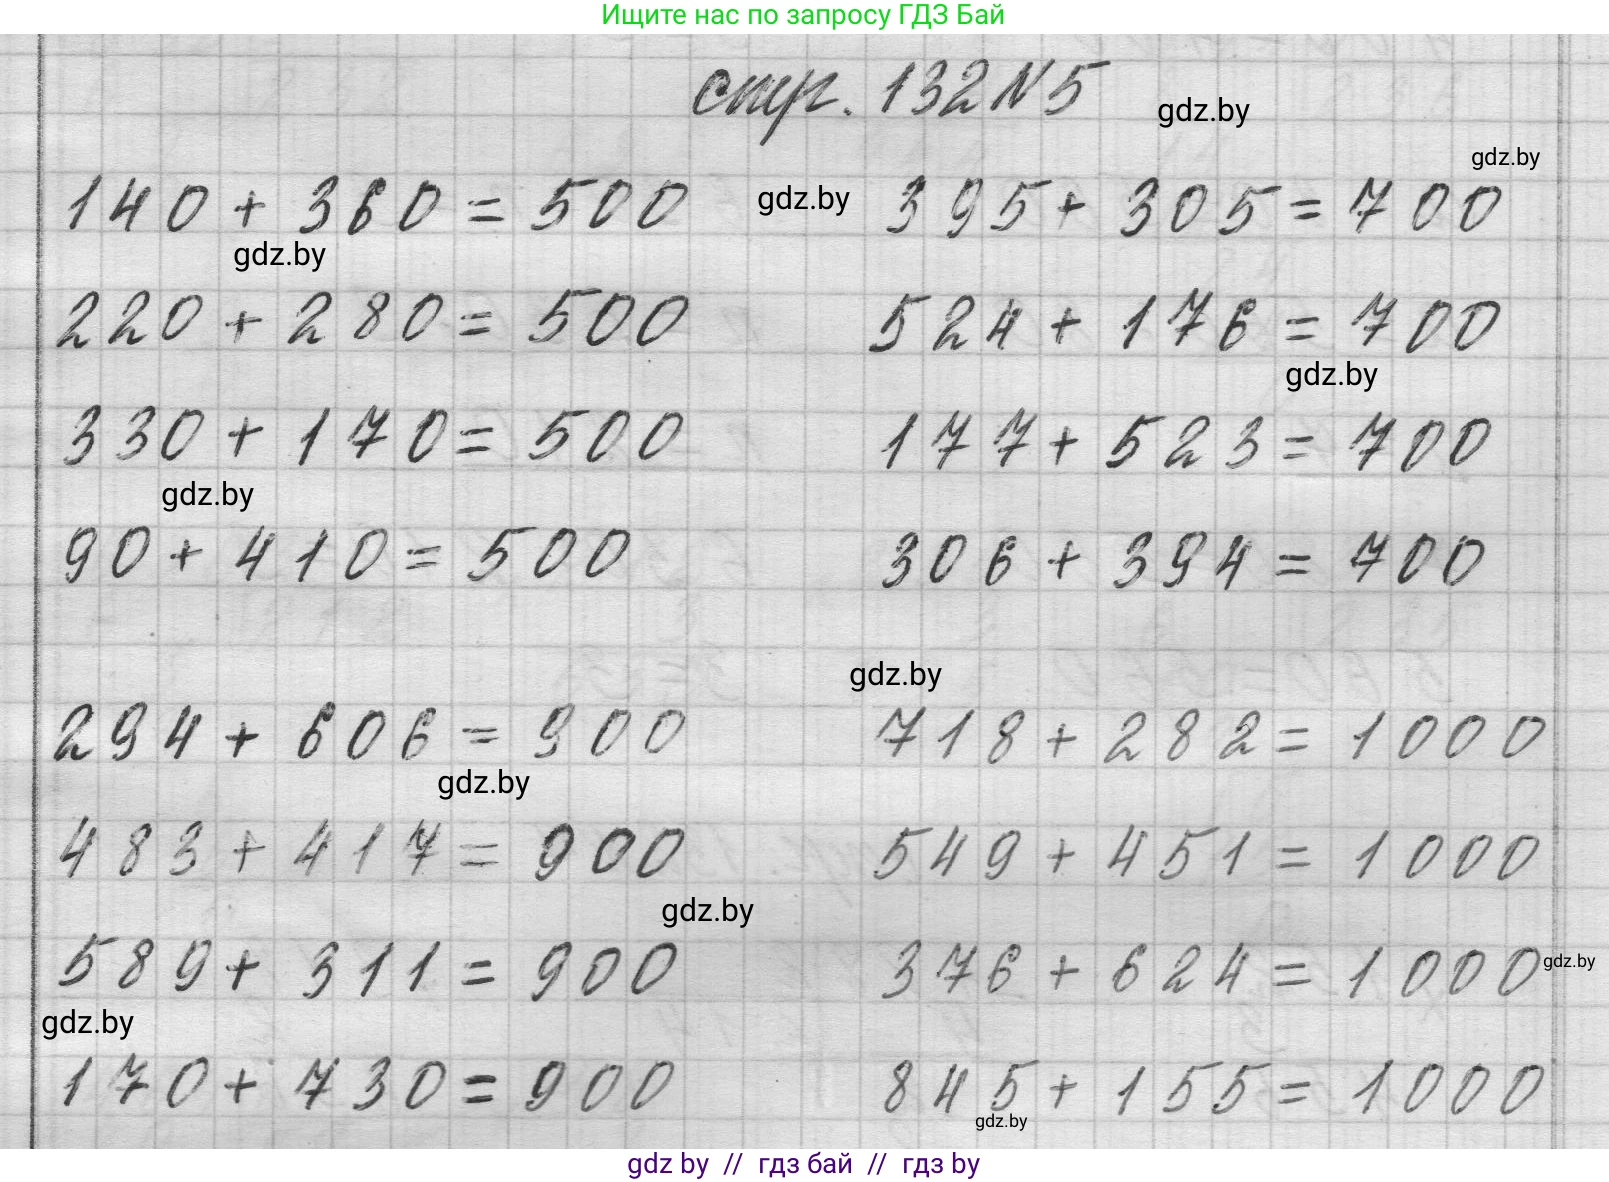 Ищите нас по запросу ГДЗ Бай
стр. 132 N 5
gdz.by
gdz.by
140 + 360 = 500
gdz.by
395 + 305 = 700
gdz.by
220 + 280 = 500
524 + 176 = 700
gdz.by
330 + 170 = 500
177 + 523 = 700
gdz.by
90 + 410 = 500
306 + 394 = 700
gdz.by
294 + 606 = 900
718 + 282 = 1000
gdz.by
483 + 417 = 900
549 + 451 = 1000
gdz.by
589 + 311 = 900
376 + 624 = 1000
gdz.by
gdz.by
170 + 730 = 900
845 + 155 = 1000
gdz.by
gdz by // гдз бай // гдз by